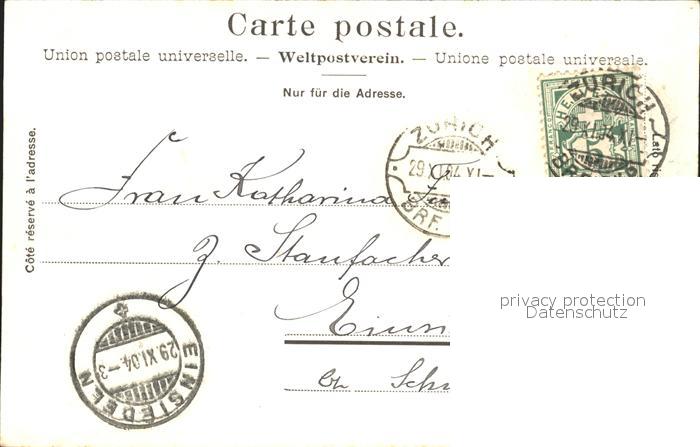 Carte postale.
Union postale universelle. — Weltpostverein. — Unione postale universale.
Nur für die Adresse.
Côté réservé à l'adresse.
ZÜRICH
29.XI.04.VI–
BRF.
ZÜRICH
29.XI.04.VI–
HELVETIA
5
Frau Katharina
z. Stauffacher
Eins
bz. Schw
EINSIEDELN
29.XI.04.-3
privacy protection
Datenschutz